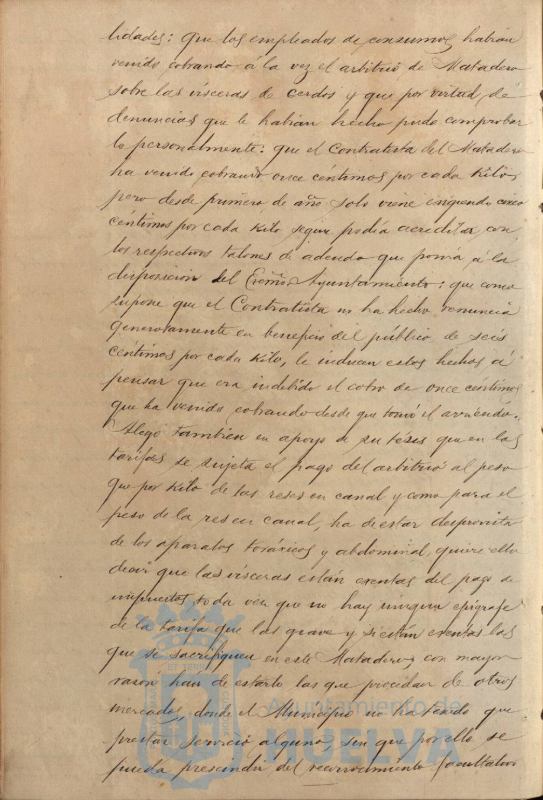 lidades: que los empleados de consumos, habian
venido cobrando á la vez el arbitrio de Matadero
sobre las vísceras de cerdos y que por virtud de
denuncias que le habian hecho pudo comprobar
lo personalmente: que el Contratista del Matadero
ha venido cobrando once céntimos por cada Kilo,
pero desde primero de año solo viene exigiendo cinco
céntimos por cada Kilo segun podia acreditar con
los respectivos talones de adeudo que ponia á la
disposicion del Excmo Ayuntamiento: que como
supone que el Contratista no ha hecho renuncia
generosamente en beneficio del público de seis
céntimos por cada Kilo, le inducen estos hechos á
pensar que era indebido el cobro de once centimos
que ha venido cobrando desde que tomó el arriendo.
Alegó tambien en apoyo de su tésis que en las
tarifas se sujeta el pago del arbitrio al peso
que por Kilo de las reses en canal y como para el
peso de la res en canal, ha de estar desprovista
de los aparatos toráxicos y abdominal, quiere ello
decir que las vísceras están exentas del pago de
impuestos, toda vez que no hay ningun epígrafe
de la tarifa que las grave y si están exentas las
que se sacrifiquen en este Matadero, con mayor
razon han de estarlo las que procedan de otros
mercados, donde el Municipio no ha tenido que
prestar servicio alguno, sin que por ello se
pueda prescindir del reconocimiento facultativo
Ayuntamiento de
HUELVA